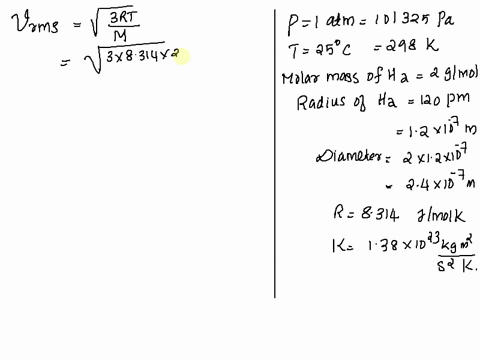 Vrms = √3RT/M
= √3×8.314×2
P = 1 atm = 101325 Pa
T = 25°C = 298 K
Molar mass of H2 = 2 g/mol
Radius of H2 = 120 pm
= 1.2×10^-7 m
Diameter = 2×1.2×10^-7
= 2.4×10^-7 m
R = 8.314 J/molK
K = 1.38×10^23 kg m²/s² K.